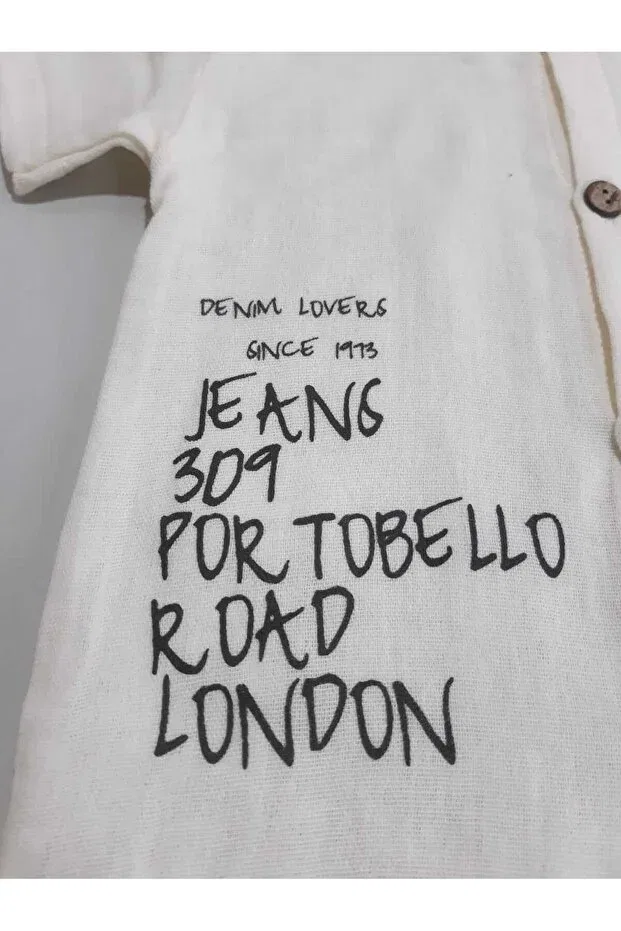 DENIM LOVERS
SINCE 1973
JEANS
309
PORTOBELLO
ROAD
LONDON